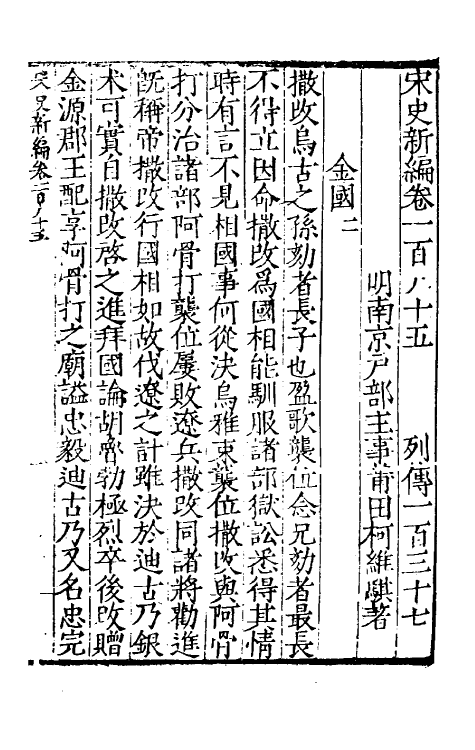 宋史新編卷一百八十五　列傳一百三十七
明南京戶部主事莆田柯維騏著
金國二
撒改烏古之孫劾者長子也盈歌襲位念兄劾者最長
不得立因命撒改爲國相能馴服諸部獄訟悉得其情
時有言不見相國事何從決烏雅束襲位撒改與阿骨
打分治諸部阿骨打襲位屢敗遼兵撒改同諸將勸進
旣稱帝撒改行國相如故伐遼之計雖決於迪古乃銀
术可實自撒改啓之進拜國論胡魯勃極烈卒後改贈
金源郡王配享阿骨打之廟謚忠毅迪古乃又名忠完
宋史新編卷一百八十五